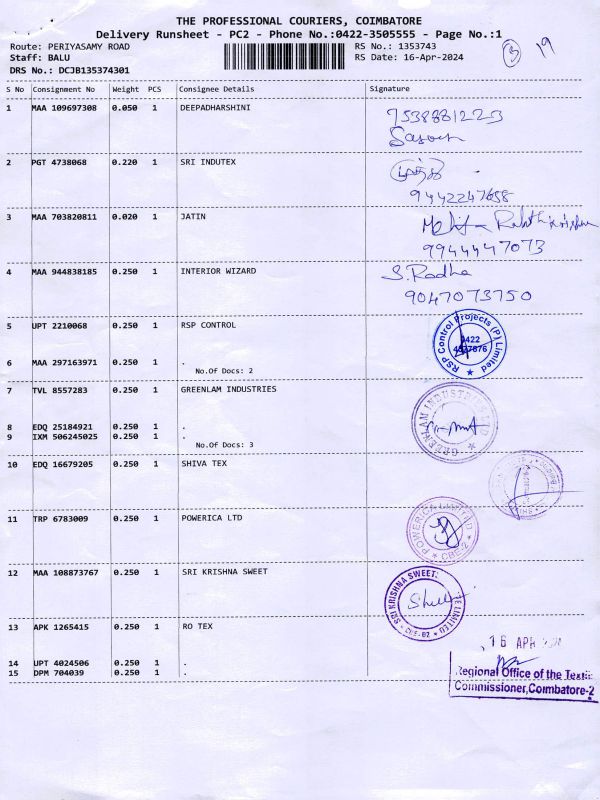 THE PROFESSIONAL COURIERS, COIMBATORE
Delivery Runsheet - PC2 - Phone No.:0422-3505555 - Page No.:1
Route: PERIYASAMY ROAD
Staff: BALU
DRS No.: DCJB135374301
RS No.: 1353743
RS Date: 16-Apr-2024
3 19
S No Consignment No Weight PCS Consignee Details Signature
1 MAA 109697308 0.050 1 DEEPADHARSHINI 7538881223
2 PGT 4738068 0.220 1 SRI INDUTEX
9442247658
3 MAA 703820811 0.020 1 JATIN
9944447073
4 MAA 944838185 0.250 1 INTERIOR WIZARD S. Radha
9047073750
5 UPT 2210068 0.250 1 RSP CONTROL
RSP Control Projects (P) Limited
0422
6 MAA 297163971 0.250 1
No.Of Docs: 2
7 TVL 8557283 0.250 1 GREENLAM INDUSTRIES
GREENLAM INDUSTRIES LTD
8 EDQ 25184921 0.250 1 .
9 IXM 506245025 0.250 1 .
No.Of Docs: 3
10 EDQ 16679205 0.250 1 SHIVA TEX
11 TRP 6783009 0.250 1 POWERICA LTD
POWERICA LIMITED
CBE-2
12 MAA 108873767 0.250 1 SRI KRISHNA SWEET
SRI KRISHNA SWEETS
13 APK 1265415 0.250 1 RO TEX
16 APR
14 UPT 4024506 0.250 1 .
15 DPM 704039 0.250 1 .
Regional Office of the Textile
Commissioner, Coimbatore-2